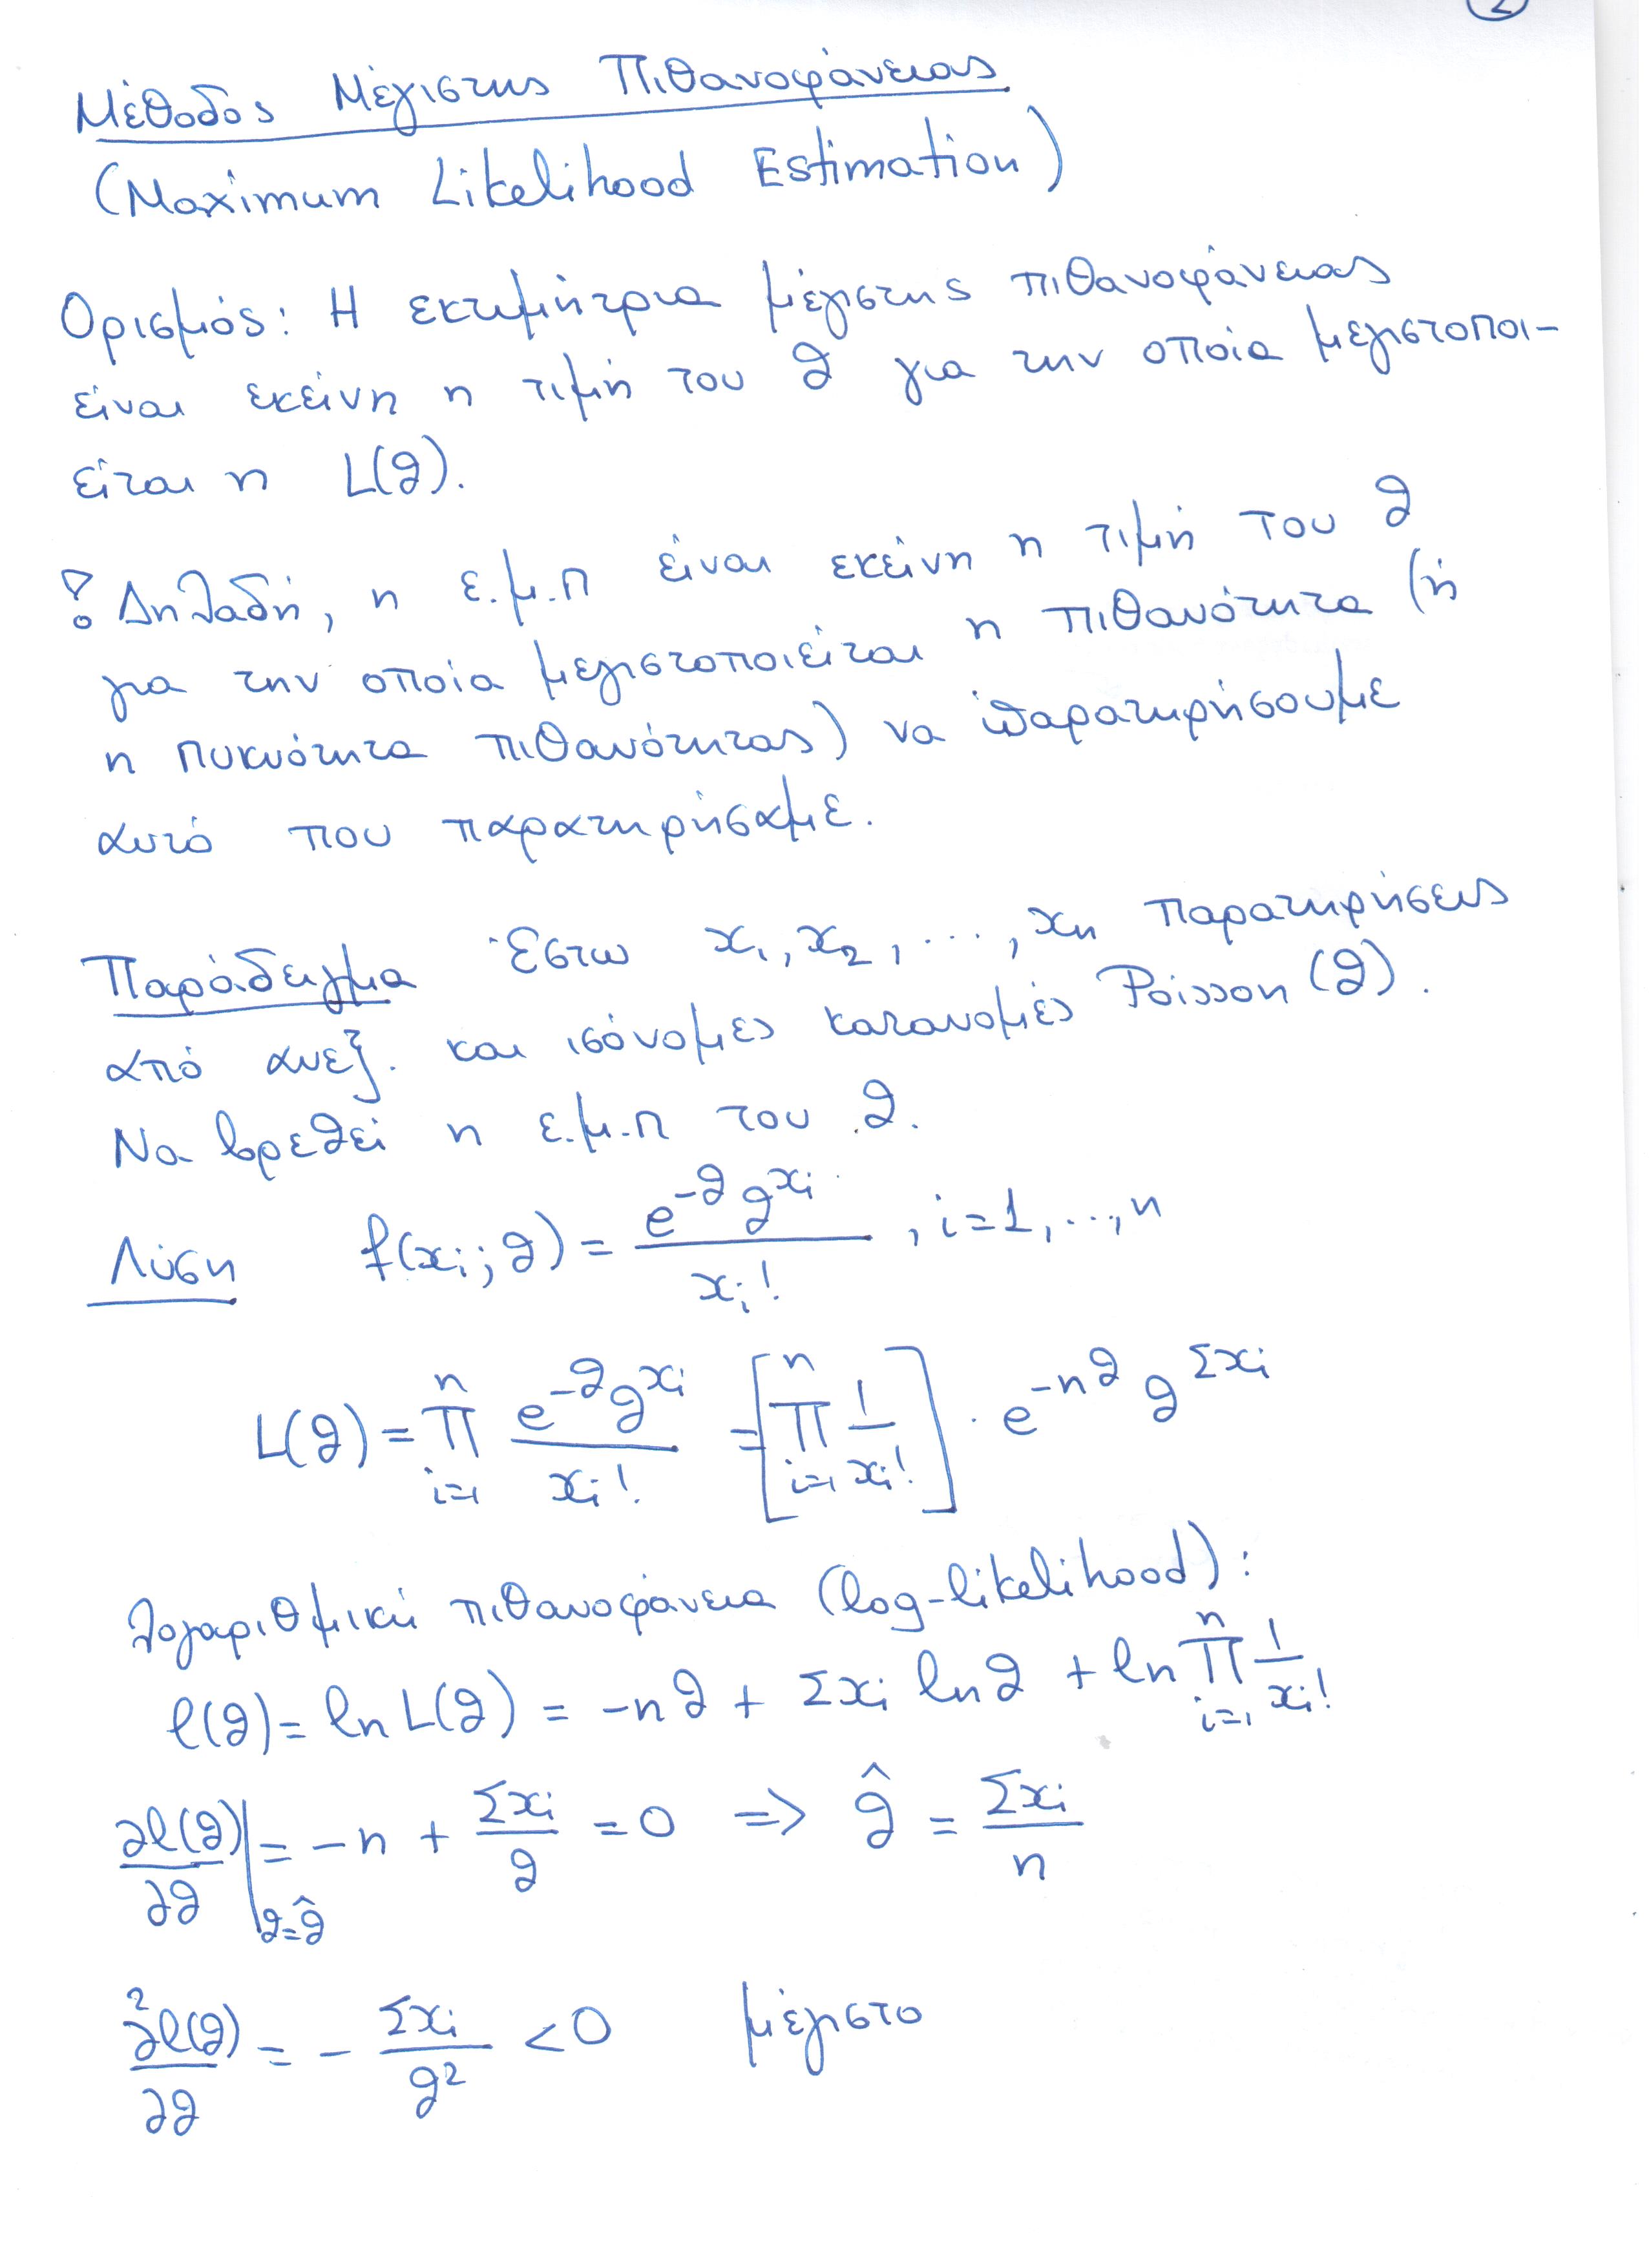 2
Μέθοδος Μέγιστης Πιθανοφάνειας
(Maximum Likelihood Estimation)
Ορισμός: Η εκτιμήτρια μέγιστης πιθανοφάνειας
είναι εκείνη η τιμή του θ για την οποία μεγιστοποι-
είται η L(θ).
! Δηλαδή, η ε.μ.π είναι εκείνη η τιμή του θ
για την οποία μεγιστοποιείται η πιθανότητα (ή
η πυκνότητα πιθανότητας) να παρατηρήσουμε
αυτό που παρατηρήσαμε.
Παράδειγμα Έστω x₁, x₂, ..., xₙ παρατηρήσεις
από ανεξ. και ισόνομες κατανομές Poisson(θ).
Να βρεθεί η ε.μ.π του θ.
Λύση f(xᵢ; θ) = e^{-θ} θ^{xᵢ} / xᵢ! , i=1, ..., n
L(θ) = ∏_{i=1}^{n} e^{-θ} θ^{xᵢ} / xᵢ! = [∏_{i=1}^{n} 1/xᵢ!] · e^{-nθ} θ^{Σxᵢ}
Λογαριθμική πιθανοφάνεια (log-likelihood):
ℓ(θ) = ln L(θ) = -nθ + Σxᵢ lnθ + ln ∏_{i=1}^{n} 1/xᵢ!
∂ℓ(θ)/∂θ |_{θ=θ̂} = -n + Σxᵢ/θ = 0 => θ̂ = Σxᵢ/n
∂²ℓ(θ)/∂θ = - Σxᵢ/θ² < 0 μέγιστο